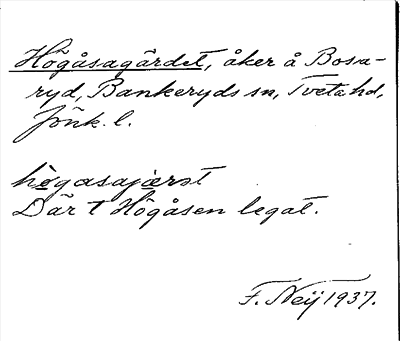 Högåsagärdet, åker å Bosa-
ryd, Bankeryds sn, Tveta hd,
Jönk. l.
högasajærət
Där t Högåsen legat.
F. Neij 1937.